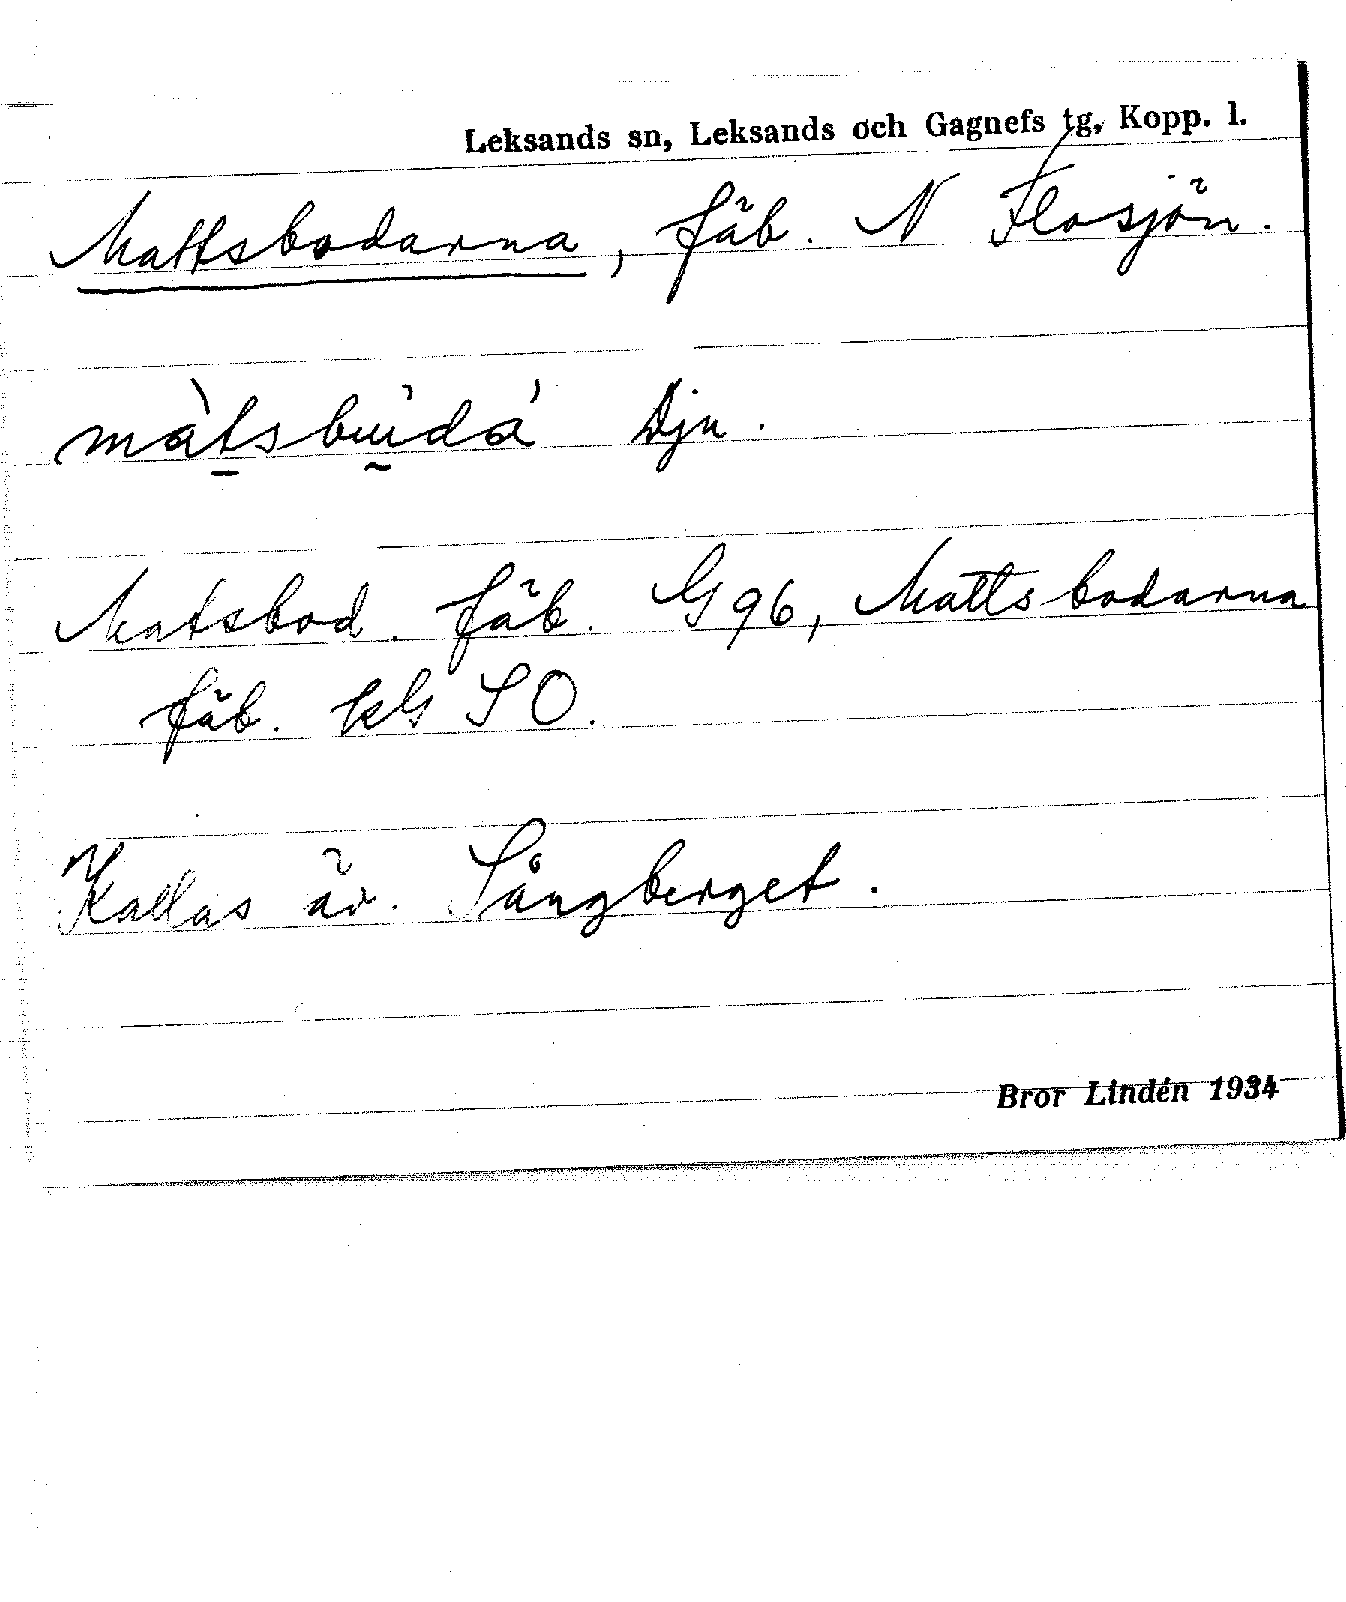 Leksands sn, Leksands och Gagnefs tg, Kopp. l.
Mattsbodarna, fäb. N Flosjön.
Dju.
Matsbod. fäb. G 96, Mattsbodarna
fäb. SO.
Kallas äv. Sångberget.
Bror Lindén 1934